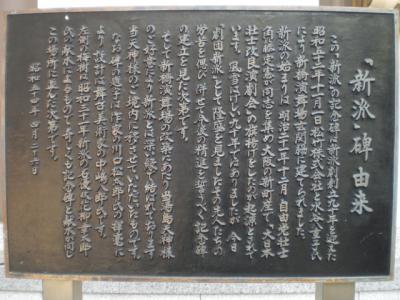 「新派」碑 由来
この「新派」の記念碑は新派劇創立九十年を迎えた
昭和五十二年十一月一日松竹株式会社大谷
により新橋演舞場玄関脇に建てられました。
新派の始まりは 明治二十一年十二月 自由党壮士
角藤定憲が同志を集め大阪の新町座で「大日本
壮士改良演劇会」の旗揚げをしたのが起源とされて
います。風雪はげしい九十年ではありましたが 今日
劇団新派として隆盛を見ましたその先人たちの
労苦を偲び 併せて今後の精進を誓うべく記念碑
の建立を見た次第です。
そして新橋演舞場の改築にあたり当湯島天神様
のご好意により新派とは深い縁で結ばれております
当天神様のご境内に移させていただいたものです。
なお碑の題字は作家の川口松太郎氏の揮毫に
より設計は舞台美術家の中嶋八郎氏です。
左側の梅樹は昭和三十二年新派の名優花柳章太郎
氏の献木に
この場所に並んだ次第です。
昭和五十四年四月二十六日